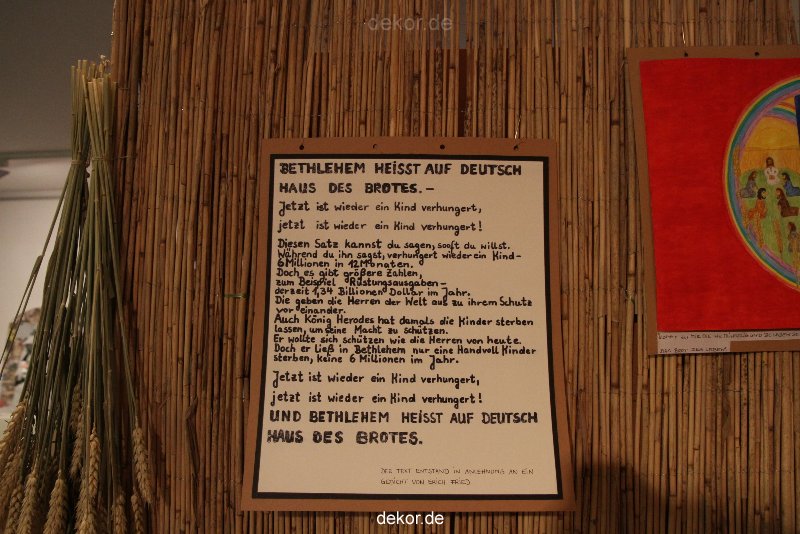 dekor.de
BETHLEHEM HEISST AUF DEUTSCH
HAUS DES BROTES.–
Jetzt ist wieder ein Kind verhungert,
jetzt ist wieder ein Kind verhungert!
Diesen Satz kannst du sagen, sooft du willst.
Während du ihn sagst, verhungert wieder ein Kind–
6 Millionen in 12 Monaten.
Doch es gibt größere Zahlen,
zum Beispiel Rüstungsausgaben–
derzeit 1,34 Billionen Dollar im Jahr.
Die geben die Herren der Welt aus zu ihrem Schutz
vor einander.
Auch König Herodes hat damals die Kinder sterben
lassen, um seine Macht zu schützen.
Er wollte sich schützen wie die Herren von heute.
Doch er ließ in Bethlehem nur eine Handvoll Kinder
sterben, keine 6 Millionen im Jahr.
Jetzt ist wieder ein Kind verhungert,
jetzt ist wieder ein Kind verhungert!
UND BETHLEHEM HEISST AUF DEUTSCH
HAUS DES BROTES.
DER TEXT ENTSTAND IN ANLEHNUNG AN EIN
GEDICHT VON ERICH FRIED
dekor.de